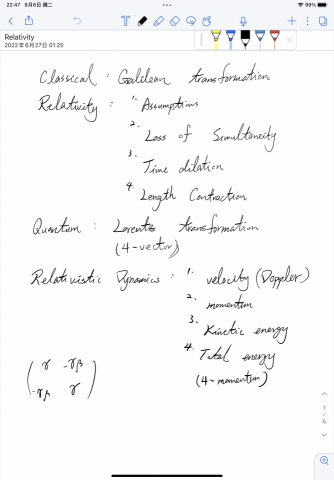 22:47 9月6日 週二
99%
Relativity
2022年6月27日 01:25
Classical : Galilean transformation
Relativity : 1. Assumptions
2. Loss of Simultaneity
3. Time dilation
4. Length Contraction
Quantum : Lorentz transformation
(4-vector)
Relativistic Dynamics : 1. velocity (Doppler)
2. momentum
3. Kinetic energy
4. Total energy
(4-momentum)
γ -γβ
-γβ γ
1
/
6